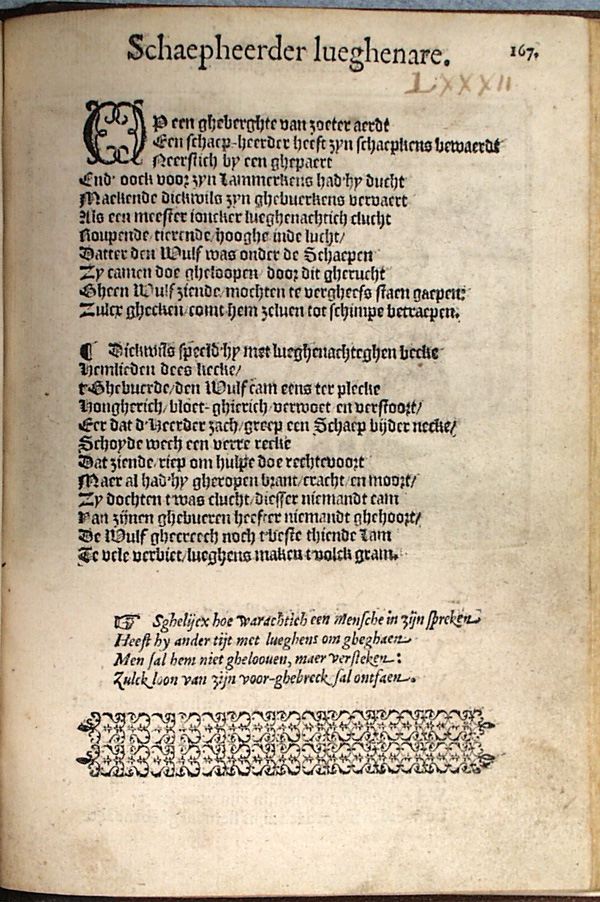 Schaepheerder lueghenare. 167.
LXXXII
OP een gheberghte van zoeter aerdt
Een schaep-heerder heeft zyn schaepkens bewaerdt
Neerstich by een ghepaert
End' oock voor zyn Lammerkens had'hy ducht
Maekende dickwils zyn ghebuerkens vervaert
Als een meester ioncker lueghenachtich clucht
Roupende/tierende/hooghe inde lucht/
Datter den Wulf was onder de Schaepen
Zy camen doe gheloopen/door dit gherucht
Gheen Wulf ziende/mochten te vergheefs staen gaepen:
Zulcx ghecken/comt hem zelven tot schimpe betraepen.
¶ Dickwils speeld'hy met lueghenachteghen becke
Hemlieden dees kecke/
t'Ghebuerde/den Wulf cam eens ter plecke
Hongherich/bloet-ghierich/verwoet en verstoort/
Eer dat d'Heerder zach/greep een Schaep byder necke/
Schoyde wech een verre recke
Dat ziende/riep om hulpe doe rechtevoort
Maer al had'hy gheropen brant/cracht/en moort/
Zy dochten t'was clucht/diesser niemandt cam
Van zijnen ghebueren heefter niemandt ghehoort/
De Wulf ghecreech noch t'beste thiende Lam
Te vele verbiet/lueghens maken t'volck gram.
☞ Sghelijcx hoe warachtich een mensche in zijn spreken
Heeft hy ander tijt met lueghens om gheghaen
Men sal hem niet ghelooven, maer versteken:
Zulck loon van zijn voor-ghebreck sal ontfaen.